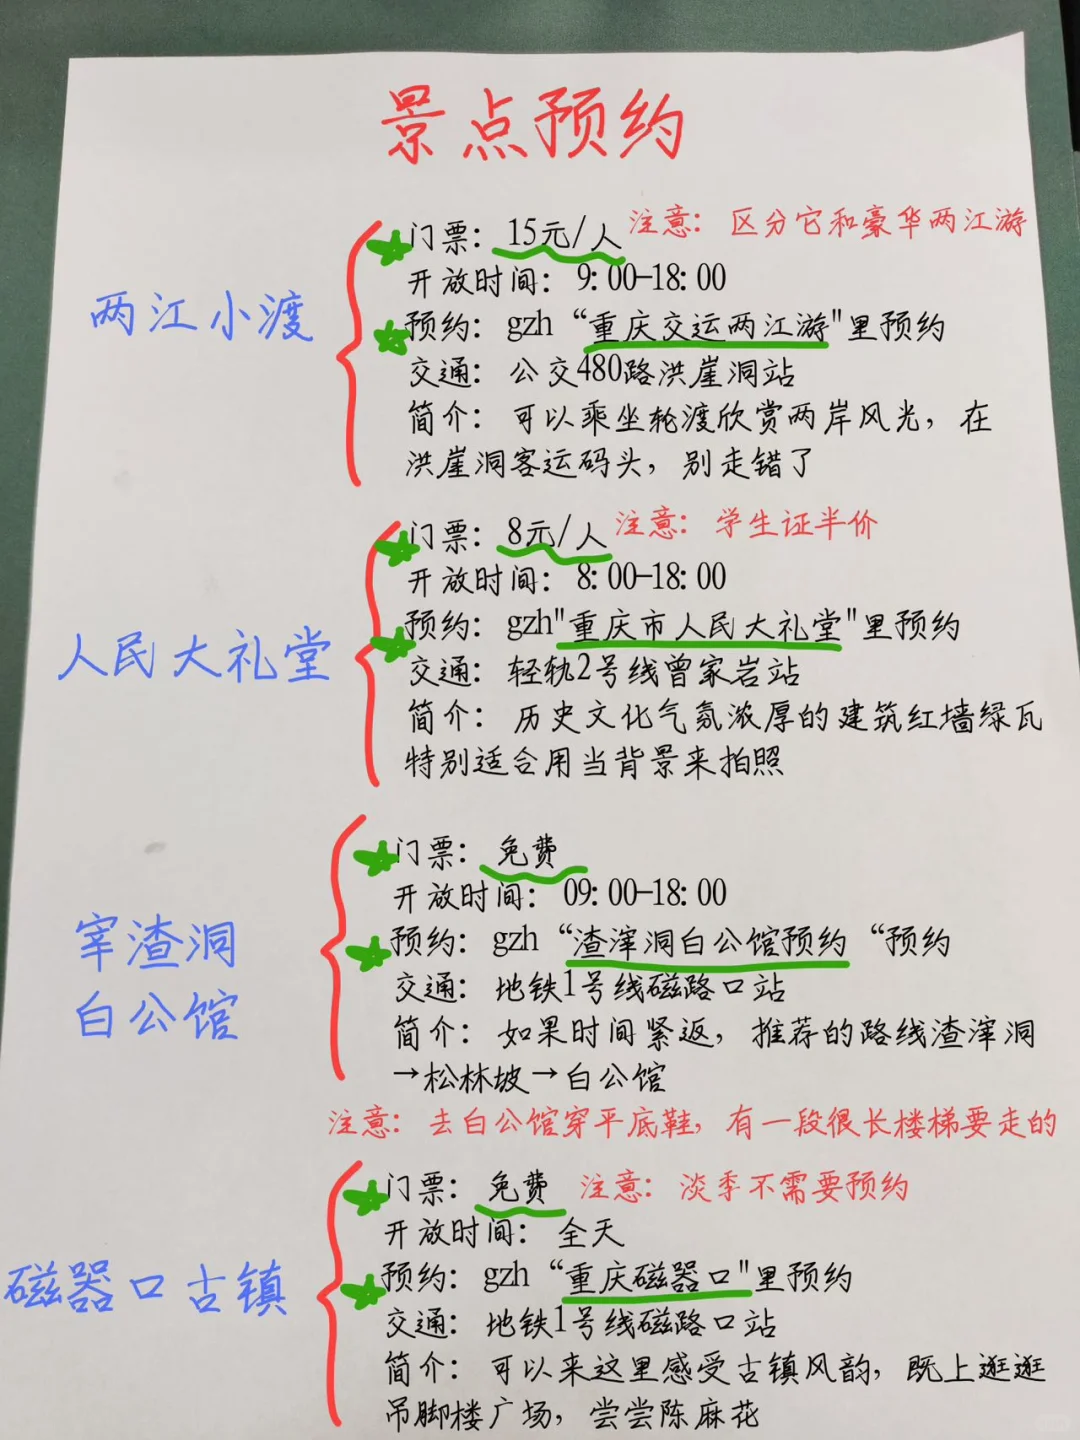 景点预约
两江小渡
门票：15元/人 注意：区分它和豪华两江游
开放时间：9:00-18:00
预约：gzh“重庆交运两江游"里预约
交通：公交480路洪崖洞站
简介：可以乘坐轮渡欣赏两岸风光，在
洪崖洞客运码头，别走错了
人民大礼堂
门票：8元/人 注意：学生证半价
开放时间：8:00-18:00
预约：gzh"重庆市人民大礼堂"里预约
交通：轻轨2号线曾家岩站
简介：历史文化气氛浓厚的建筑红墙绿瓦
特别适合用当背景来拍照
宰渣洞
白公馆
门票：免费
开放时间：09:00-18:00
预约：gzh“渣滓洞白公馆预约“预约
交通：地铁1号线磁路口站
简介：如果时间紧返，推荐的路线渣滓洞
→松林坡→白公馆
注意：去白公馆穿平底鞋，有一段很长楼梯要走的
磁器口古镇
门票：免费 注意：淡季不需要预约
开放时间：全天
预约：gzh“重庆磁器口"里预约
交通：地铁1号线磁路口站
简介：可以来这里感受古镇风韵，既上逛逛
吊脚楼广场，尝尝陈麻花